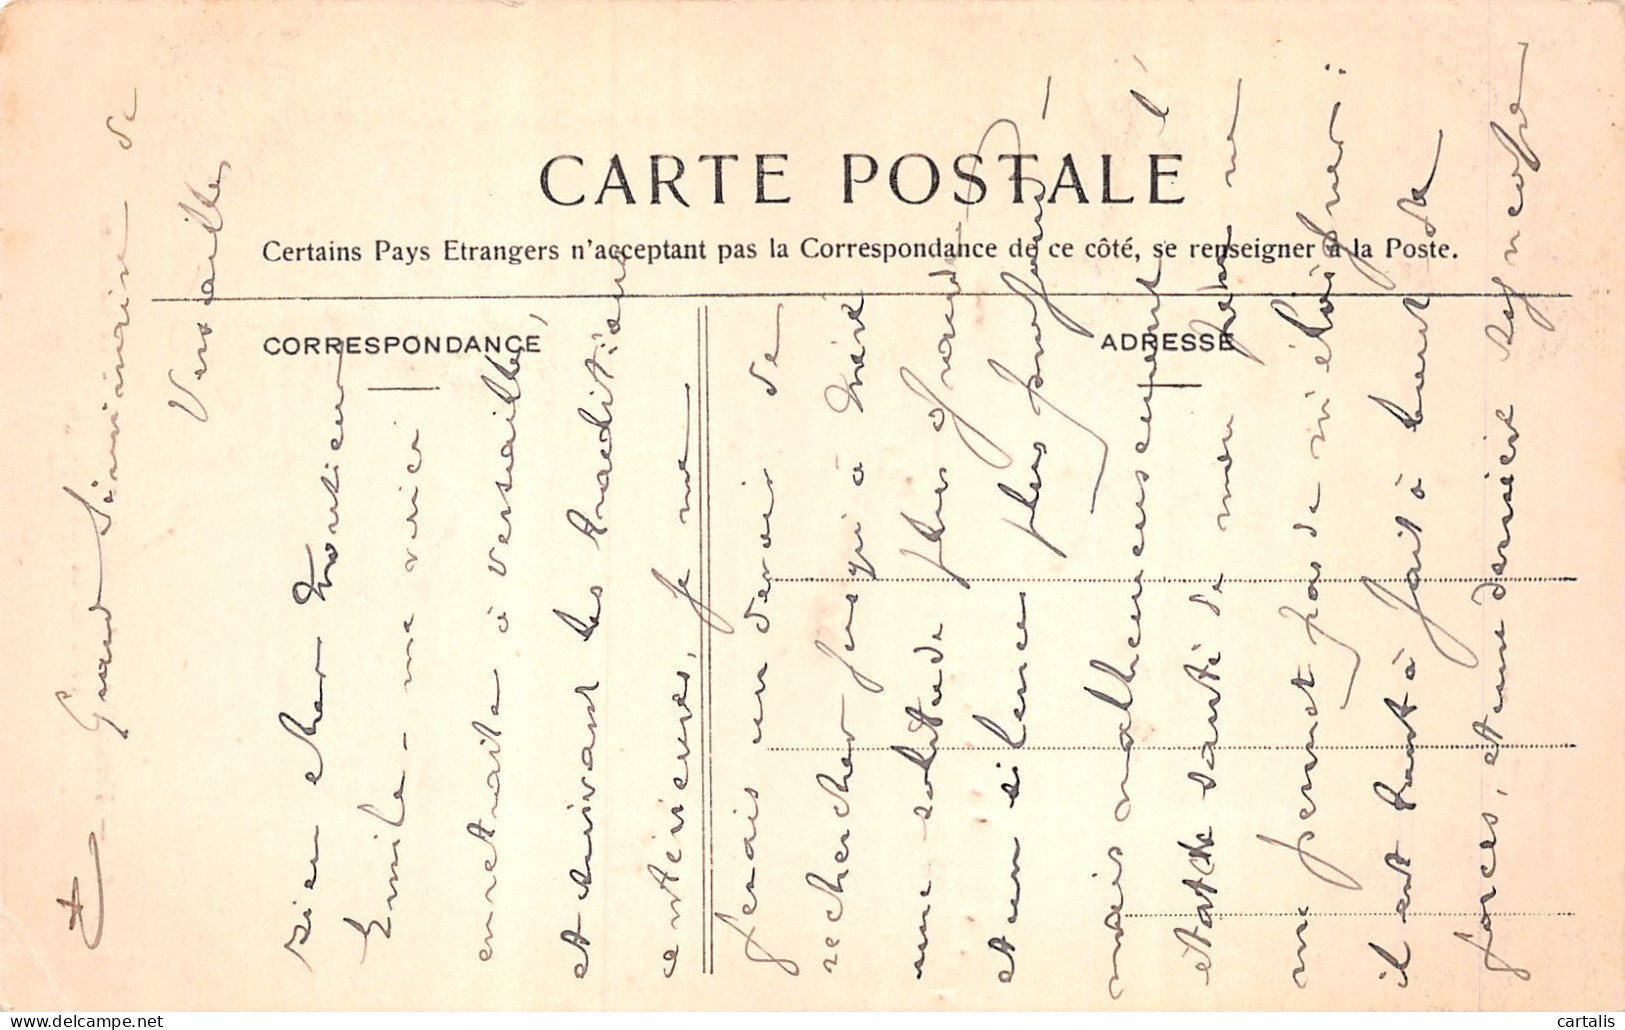 CARTE POSTALE
Certains Pays Etrangers n'acceptant pas la Correspondance de ce côté, se renseigner à la Poste.
CORRESPONDANCE
ADRESSE
Grand Séminaire de
Versailles
Bien cher Monsieur
Emile - me voici
en retraite à Versailles,
et suivant les traditions
antérieures, je me
ferais un devoir de
rechercher jusqu'à Dieu
une solitude plus grande
et un silence plus profond -
mais malheureusement l'
état de santé de mon père ne
me permet pas de m'éloigner :
il est tout à fait à bout de
forces, et une dernière syncope
cartalis